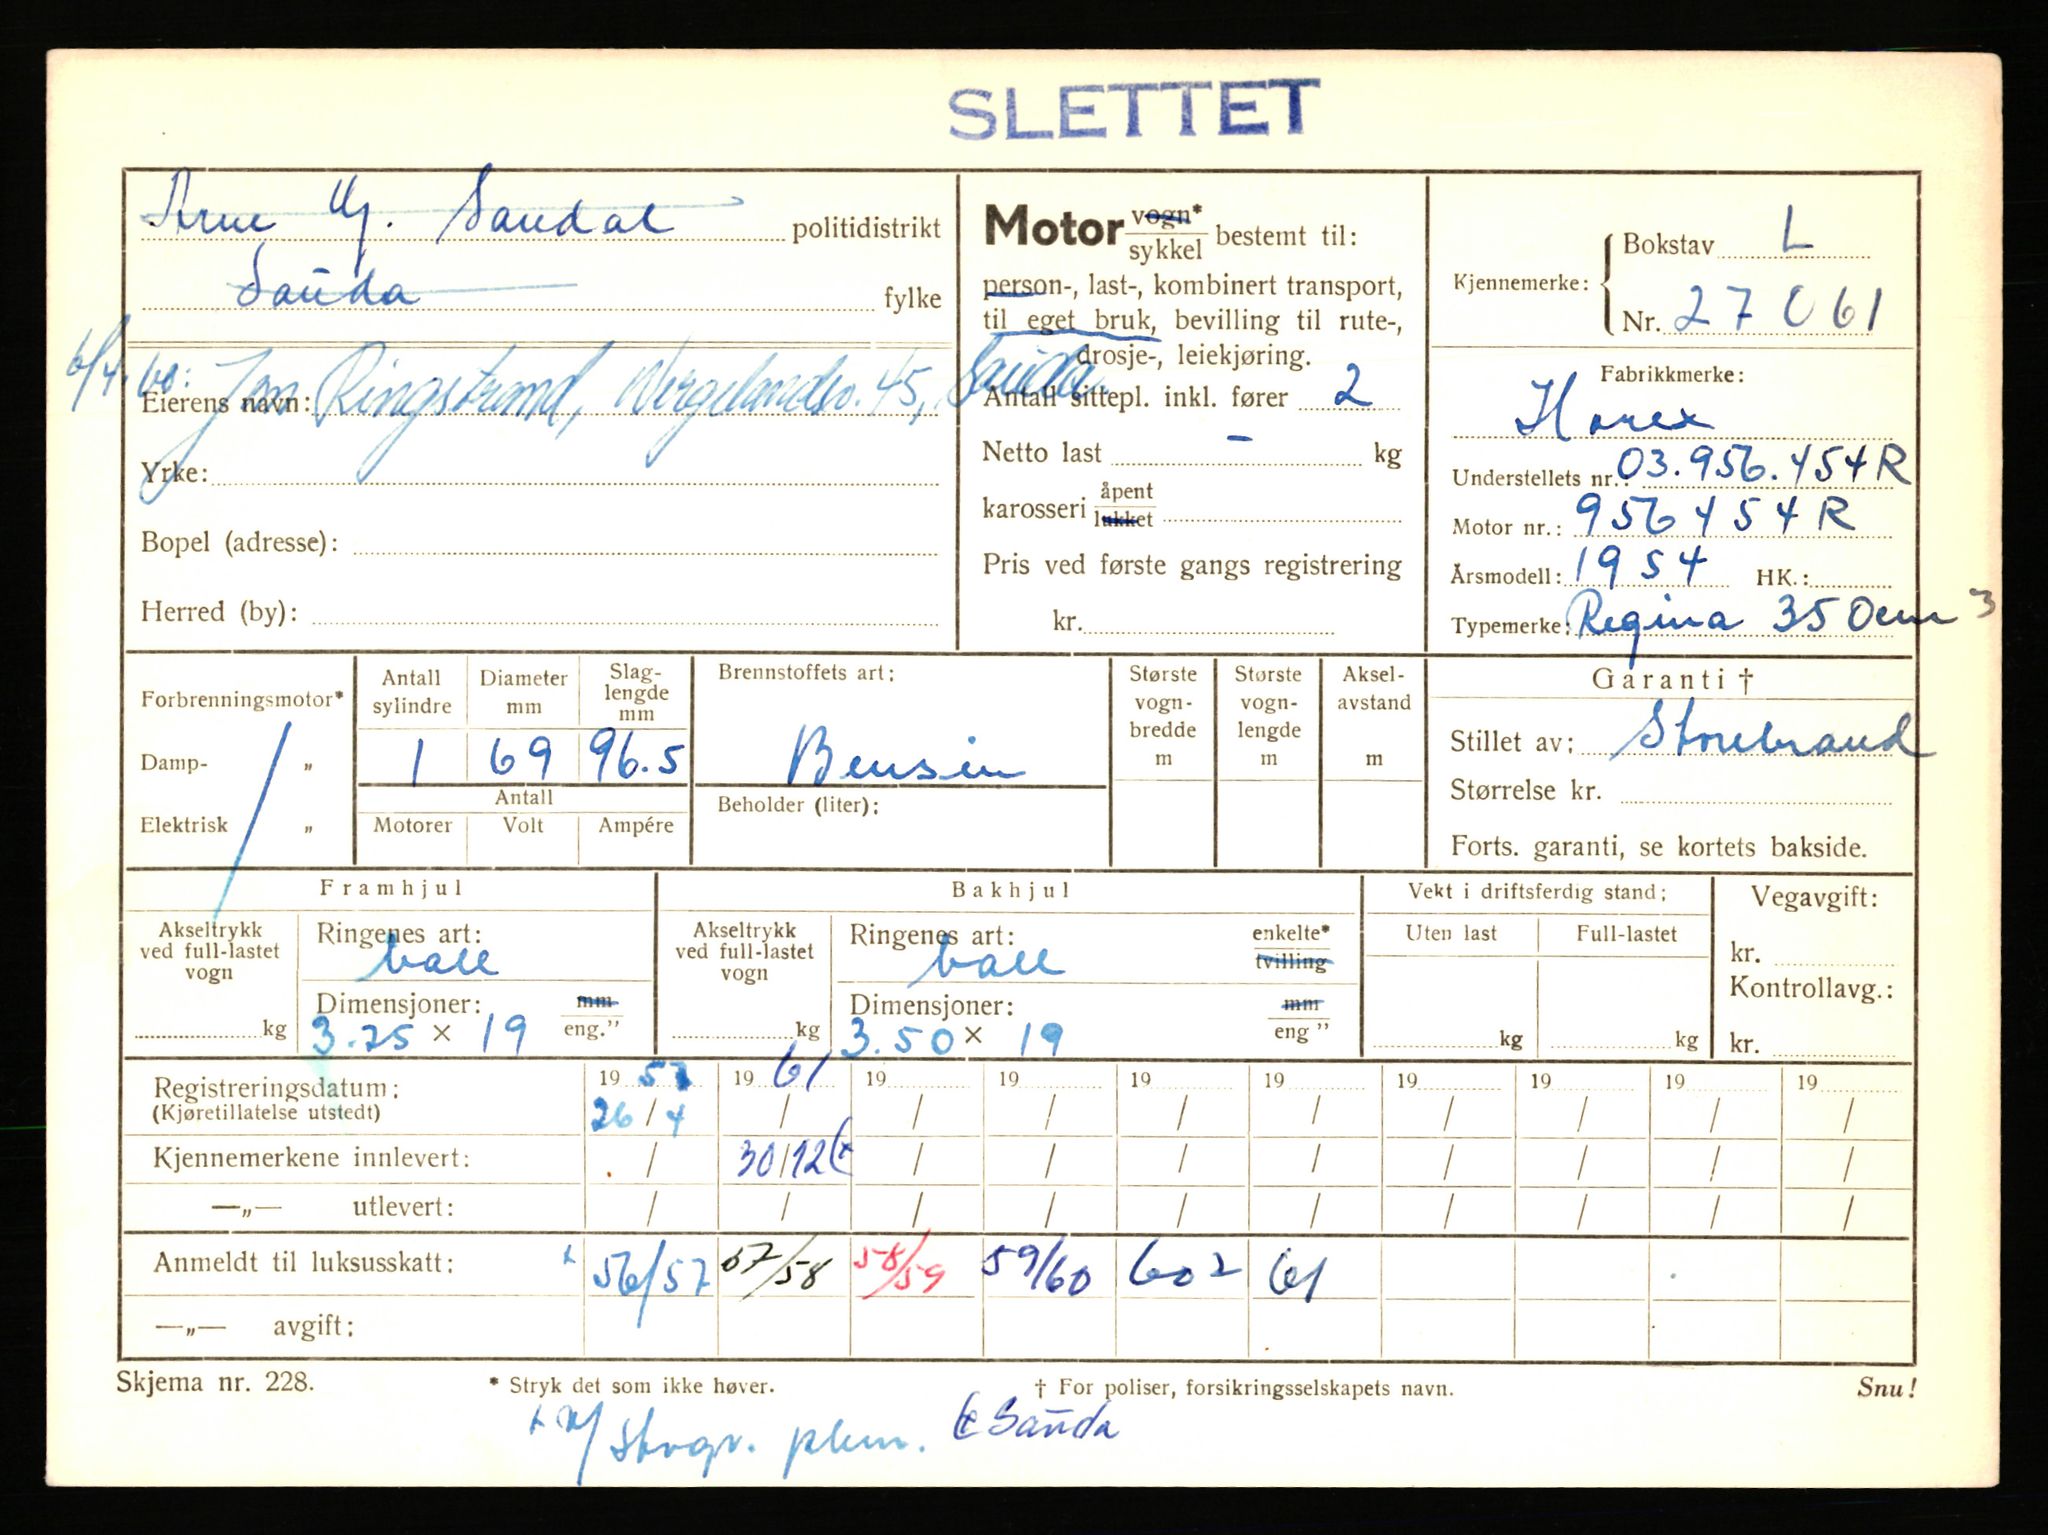 SLETTET
Arne Gj. Saudal politidistrikt
Sauda fylke
6/4.60: Jan Ringstrand, Wergelandsv. 45, Sauda
Eierens navn:
Yrke:
Bopel (adresse):
Herred (by):
Motor vogn* / sykkel bestemt til:
person-, last-, kombinert transport,
til eget bruk, bevilling til rute-,
drosje-, leiekjøring.
Antall sittepl. inkl. fører 2
Netto last – kg
karosseri åpent / lukket
Pris ved første gangs registrering
kr.
Kjennemerke: Bokstav L
Nr. 27061
Fabrikkmerke:
Horex
Understellets nr.: 03.956.454R
Motor nr.: 956454R
Årsmodell: 1954 HK.:
Typemerke: Regina 350cm3
Forbrenningsmotor*
Damp- „
Elektrisk „
Antall sylindre Diameter mm Slag-lengde mm
1 69 96.5
Antall
Motorer Volt Ampére
Brennstoffets art:
Bensin
Beholder (liter):
Største vogn-bredde m
Største vogn-lengde m
Aksel-avstand m
Garanti †
Stillet av: Storebrand
Størrelse kr.
Forts. garanti, se kortets bakside.
Framhjul
Akseltrykk ved full-lastet vogn kg
Ringenes art:
ball
Dimensjoner: mm / eng."
3.25 × 19
Bakhjul
Akseltrykk ved full-lastet vogn kg
Ringenes art: enkelte* / tvilling
ball
Dimensjoner: mm / eng "
3.50 × 19
Vekt i driftsferdig stand:
Uten last Full-lastet
kg kg
Vegavgift:
kr.
Kontrollavg.:
kr.
Registreringsdatum: 1957 1961 19 19 19 19 19 19 19 19
(Kjøretillatelse utstedt) 26/4 / / / / / / / / /
Kjennemerkene innlevert: / 30/12 / / / / / / / /
—„— utlevert: / / / / / / / / / /
Anmeldt til luksusskatt: x 56/57 57/58 58/59 59/60 602 61
—„— avgift:
Skjema nr. 228. * Stryk det som ikke høver. † For poliser, forsikringsselskapets navn. Snu!
Sauda